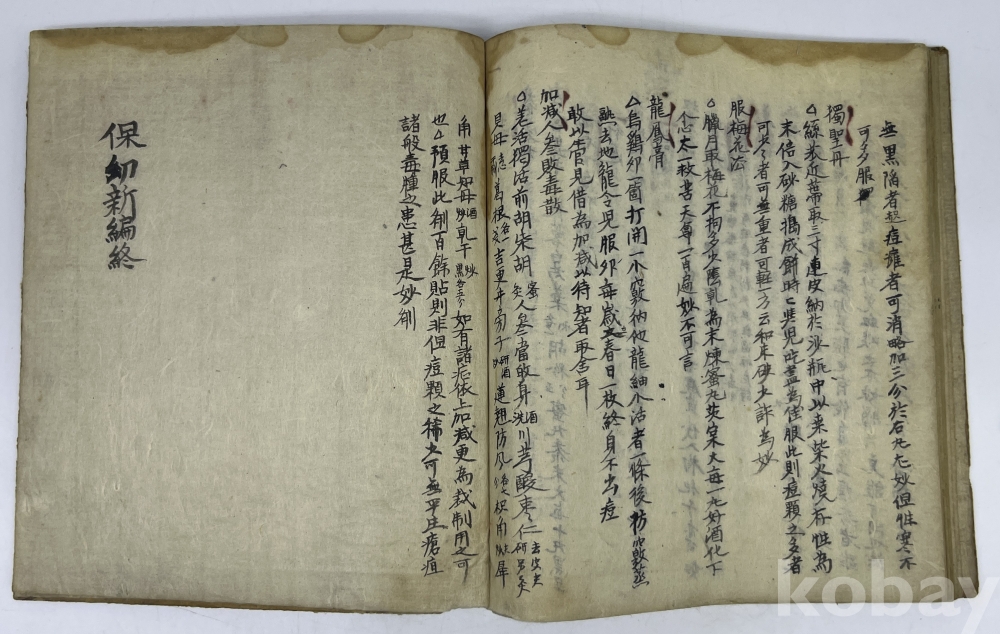 無黑陷者起痘癰者可消略加三分於右九尤妙但性寒不
可多服
獨聖丹
絲苽近蒂取三寸連皮納於沙瓶中以桒柴火燒存性為
末倍入砂糖搗成餠時與兒吃盡為佳服此則痘顆之多者
可少者可無重者可輕一方云和朱砂少許為妙
服梅花法
臘月取梅花不拘多少陰乾為末煉蜜丸芡宲大每一丸好酒化下
念太一救苦天尊一百遍妙不可言
龍鳳膏
烏鷄卯一箇打開一小竅納地龍細小活者一條後糊竅蒸
熟去地龍令兒服卯每歲立春日一枚終身不出痘
敢以管見借為加减以待知者取舍耳
加减人參敗毒散
羌活獨活前胡柴胡人參當歸身酒洗川芎酸枣仁
貝母葛根吉更牛旁子連翹防風枳角犀
角甘草知母酒炒乾干炒黑各五分如有諸症依上加减更為裁制用之可
也預服此劑百餘貼則非但痘顆之稀少可無平生瘡疽
諸般毒腫之患甚是妙劑
保幼新編終
kobay